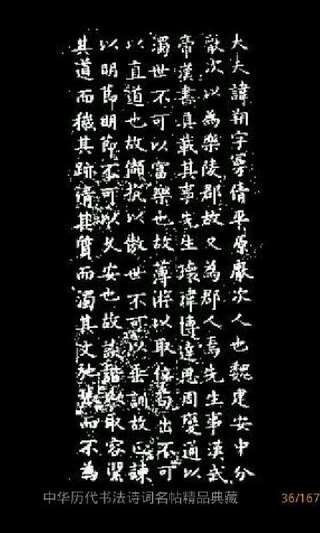 大夫諱朔字曼倩平原厭次人也魏建安中分
厭次以為樂陵郡故又為郡人焉先生事漢武
帝漢書具載其事先生瓌瑋博達思周變通以
濁世不可以富樂也故薄遊以取位苟出不可
以直道也故頡抗以傲世不可以垂訓故正諫
以明節明節不可以久安也故詼諧以取容潔
其道而穢其跡清其質而濁其文弛張而不為
中华历代书法诗词名帖精品典藏
36/167